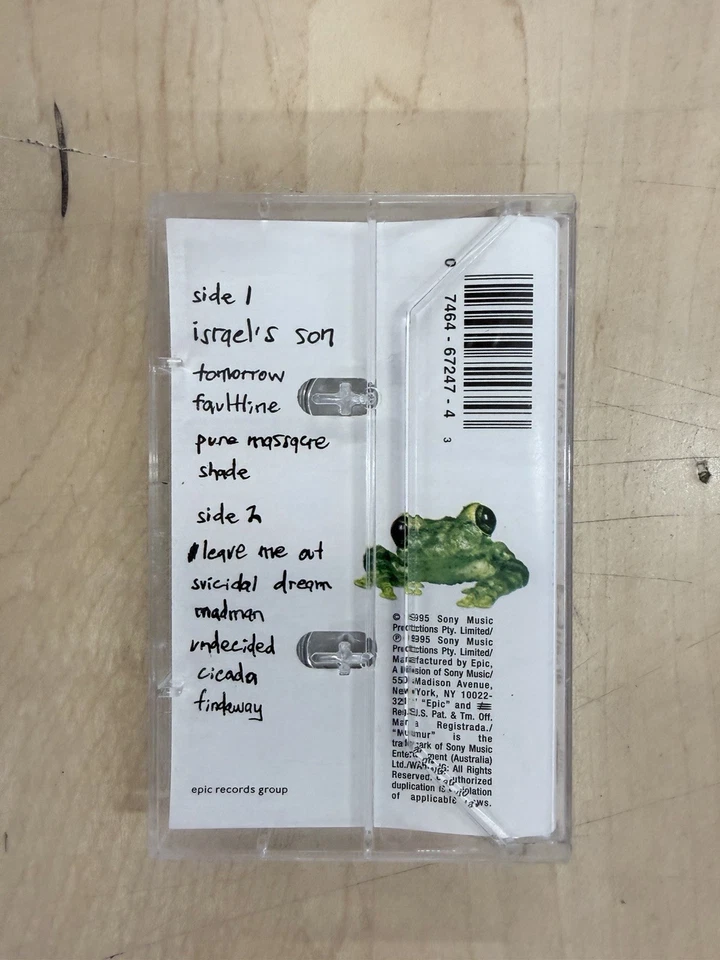 side 1
israel's son
tomorrow
faultline
pure massacre
shade
side 2
leave me out
suicidal dream
madman
undecided
cicada
findaway
epic records group
0 7464-67247-4 3
© 1995 Sony Music
Productions Pty. Limited/
℗ 1995 Sony Music
Productions Pty. Limited/
Manufactured by Epic,
A Division of Sony Music/
550 Madison Avenue,
New York, NY 10022-
321 "Epic" and
Reg. U.S. Pat. & Tm. Off.
Marca Registrada./
"Murmur" is the
trademark of Sony Music
Entertainment (Australia)
Ltd./WARNING: All Rights
Reserved. Unauthorized
duplication is a violation
of applicable laws.